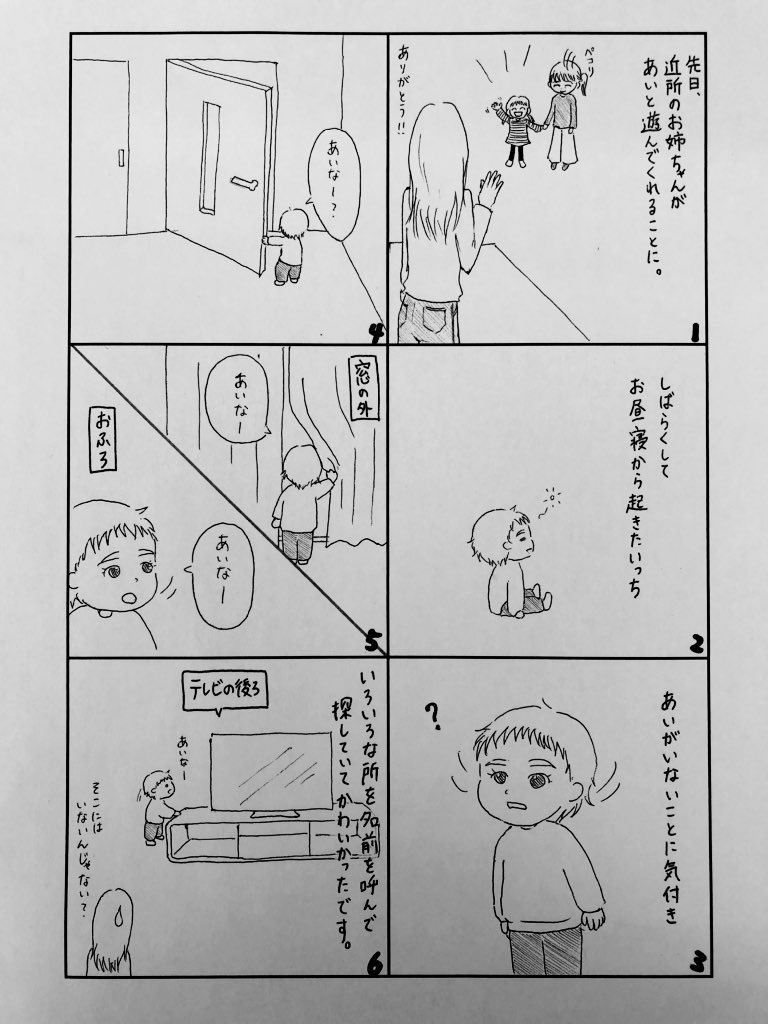 先日、
近所のお姉ちゃんが
あいと遊んでくれることに。
ペコリ
ありがとう!!
1
しばらくして
お昼寝から起きたいっち
2
あいがいないことに気付き
?
3
あいなー?
4
窓の外
あいなー
おふろ
あいなー
5
いろいろな所を名前を呼んで
探していてかわいかったです。
テレビの後ろ
あいなー
そこには
いないんじゃない?
6